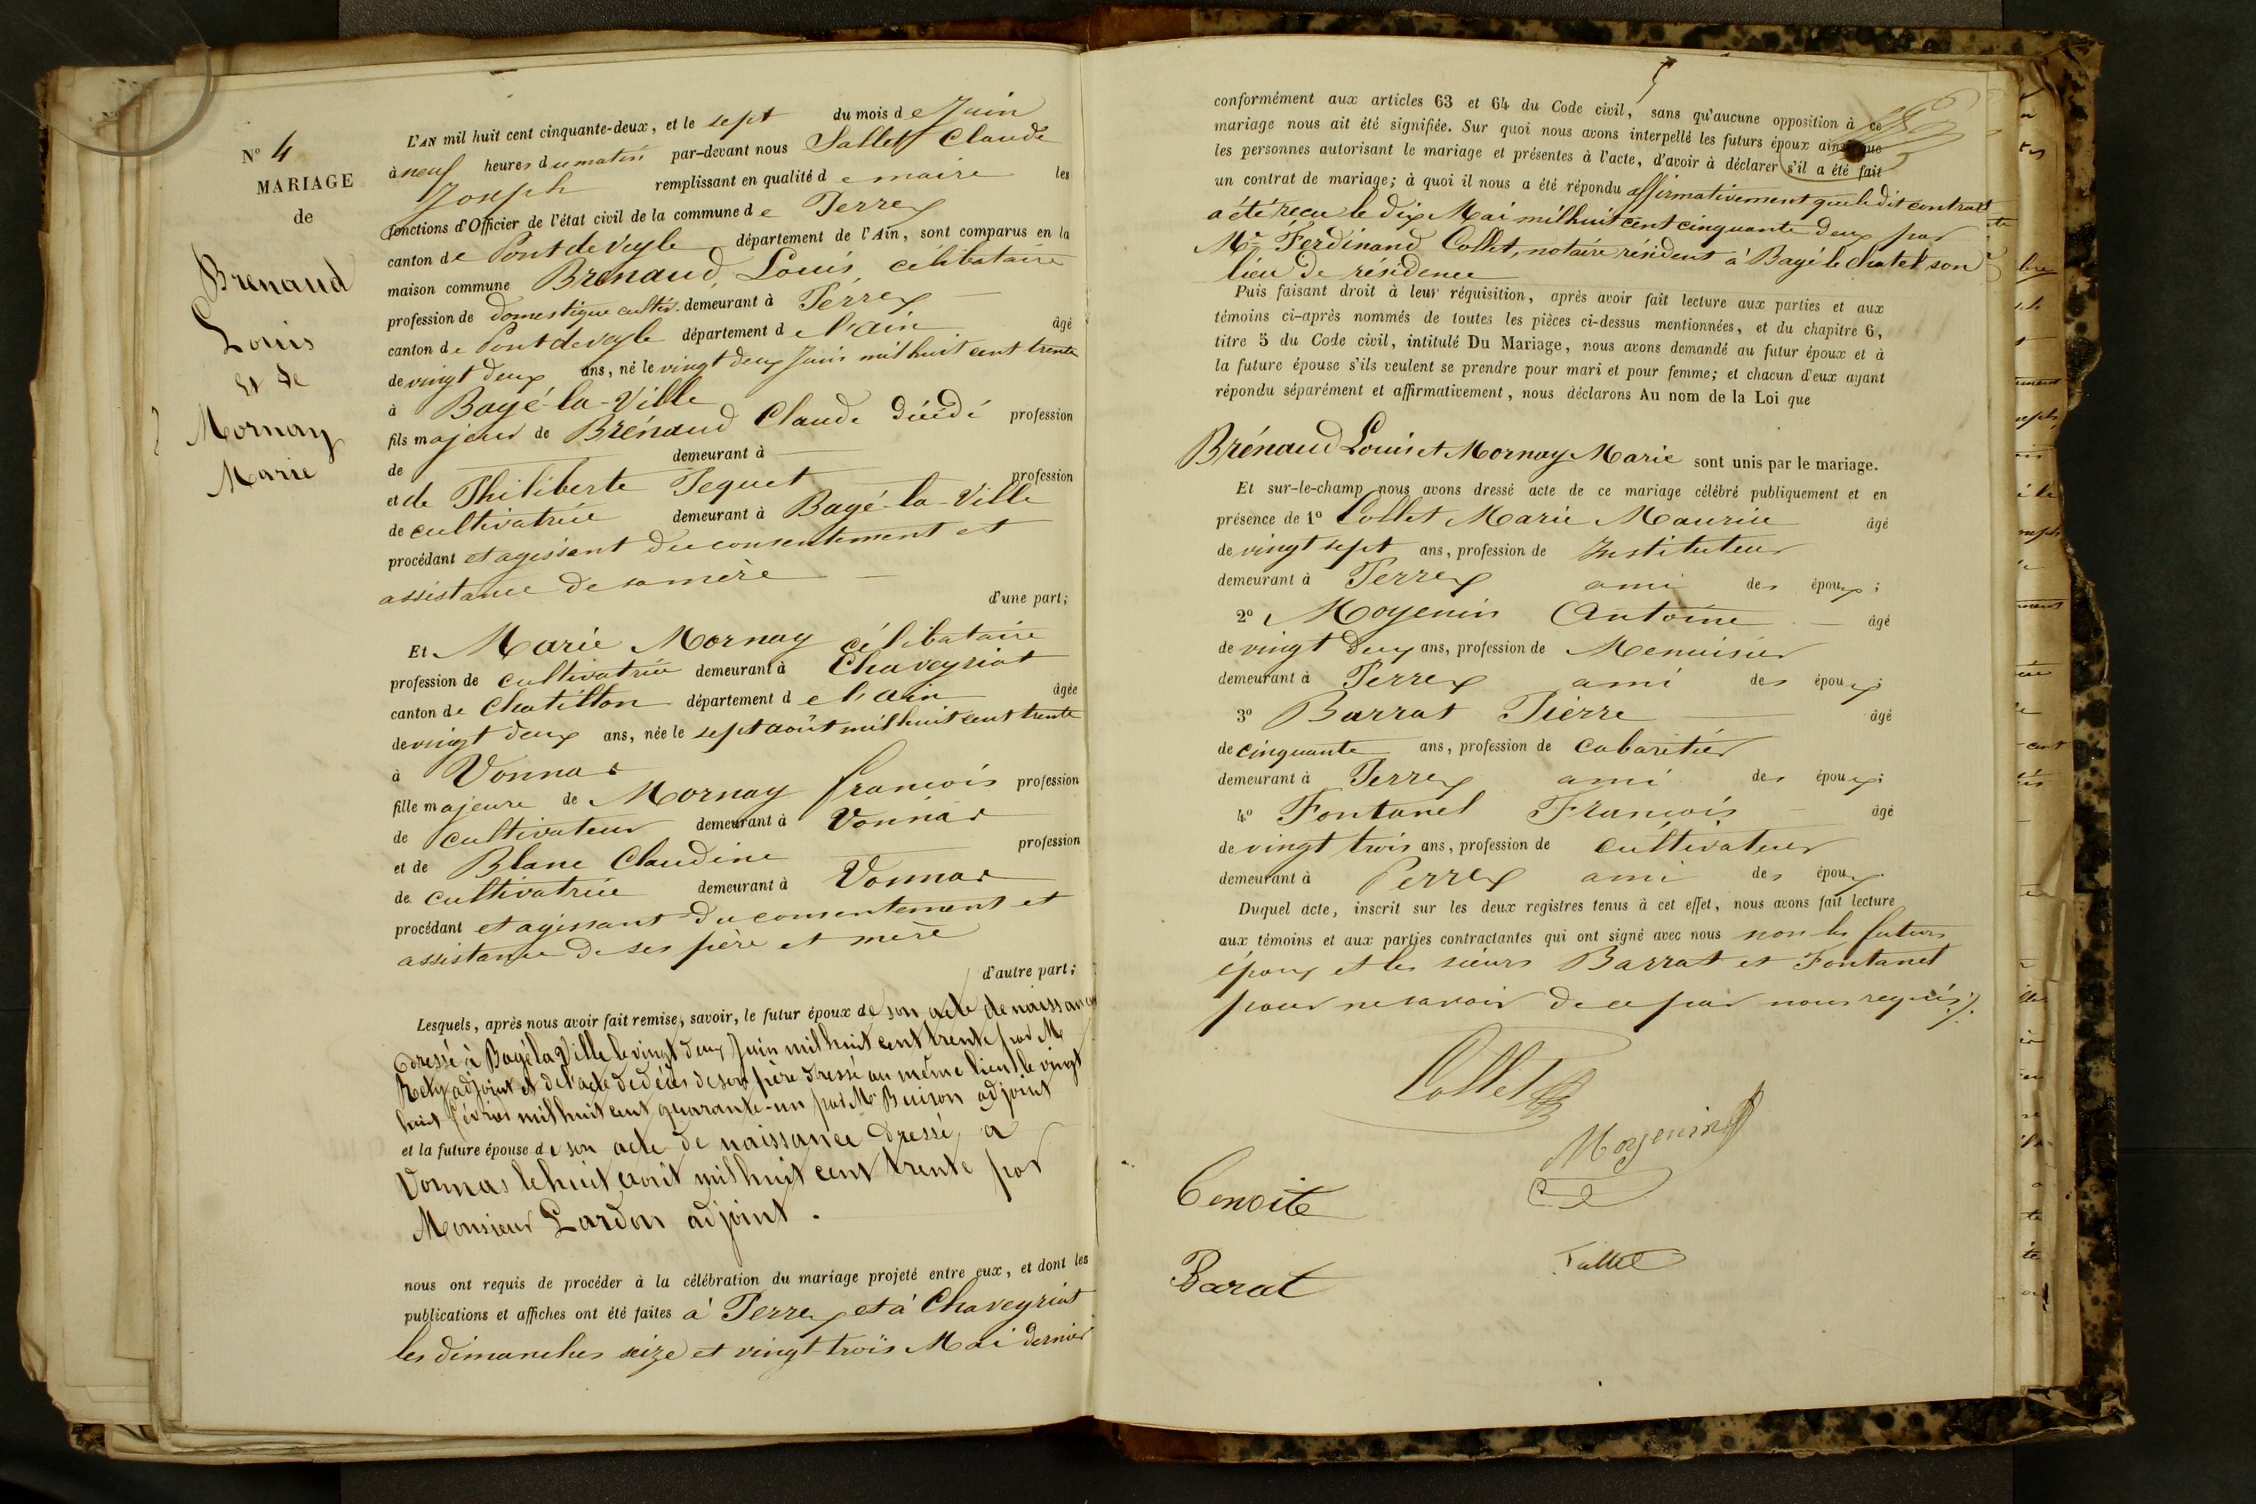 N° 4
MARIAGE
de
Brenaud
Louis
et de
Mornay
Marie
L'AN mil huit cent cinquante-deux, et le sept du mois de Juin
à neuf heures du matin par-devant nous Sallet Claude
Joseph remplissant en qualité de maire les
fonctions d'Officier de l'état civil de la commune de Perrex
canton de Pont de Veyle département de l'Ain, sont comparus en la
maison commune Brenaud, Louis, célibataire
profession de domestique cultiv. demeurant à Perrex
canton de Pont de veyle département de l'ain âgé
de vingt deux ans, né le vingt deux Juin mil huit cent trente
à Bagé-la-Ville
fils majeur de Brénaud Claude décédé profession
de demeurant à
et de Philiberte Pequet profession
de cultivatrice demeurant à Bagé-la-Ville
procédant et agissant du consentement et
assistance de sa mère
d'une part;
Et Marie Mornay célibataire
profession de cultivatrice demeurant à Chaveyriat
canton de Chatillon département de l'ain âgée
de vingt deux ans, née le sept août mil huit cent trente
à Vonnas
fille majeure de Mornay francois profession
de cultivateur demeurant à Vonnas
et de Blanc Claudine profession
de cultivatrice demeurant à Vonnas
procédant et agissant du consentement et
assistance de ses père et mère
d'autre part;
Lesquels, après nous avoir fait remise, savoir, le futur époux de son acte de naissance
dressé à Bagé la Ville le vingt deux Juin mil huit cent trente par M
adjoint et de l'acte de décès de son père dressé au même lieu le vingt
huit février mil huit cent quarante-un par Mr Buison adjoint
et la future épouse de son acte de naissance dressé, a
Vonnas le huit août mil huit cent trente par
Monsieur Lardon adjoint.
nous ont requis de procéder à la célébration du mariage projeté entre eux, et dont les
publications et affiches ont été faites à Perrex et à Chaveyriat
les dimanches seize et vingt-trois Mai dernier
5
conformément aux articles 63 et 64 du Code civil, sans qu'aucune opposition à ce
mariage nous ait été signifiée. Sur quoi nous avons interpellé les futurs époux ainsi que
les personnes autorisant le mariage et présentes à l'acte, d'avoir à déclarer s'il a été fait
un contrat de mariage; à quoi il nous a été répondu affirmativement que le dit contrat
a été reçu le dix Mai mil huit cent cinquante deux par
Mr Ferdinand Collet, notaire résident à Bagé le chatel son
lieu de résidence
Puis faisant droit à leur réquisition, après avoir fait lecture aux parties et aux
témoins ci-après nommés de toutes les pièces ci-dessus mentionnées, et du chapitre 6,
titre 5 du Code civil, intitulé Du Mariage, nous avons demandé au futur époux et à
la future épouse s'ils veulent se prendre pour mari et pour femme; et chacun d'eux ayant
répondu séparément et affirmativement, nous déclarons Au nom de la Loi que
Brénaud Louis et Mornay Marie sont unis par le mariage.
Et sur-le-champ nous avons dressé acte de ce mariage célébré publiquement et en
présence de 1° Collet Marie Maurice âgé
de vingt sept ans, profession de Instituteur
demeurant à Perrex ami des époux;
2° Moyenin Antoine âgé
de vingt deux ans, profession de Menuisier
demeurant à Perrex ami des époux;
3° Barrat Pierre âgé
de cinquante ans, profession de cabaretier
demeurant à Perrex ami des époux;
4° Fontanel Francois âgé
de vingt trois ans, profession de cultivateur
demeurant à Perrex ami des époux.
Duquel acte, inscrit sur les deux registres tenus à cet effet, nous avons fait lecture
aux témoins et aux parties contractantes qui ont signé avec nous non les futurs
époux et les sieurs Barrat et Fontanel
pour ne savoir de ce par nous requis./.
Collet
Moyenin
Benoite
Barat
Sallet